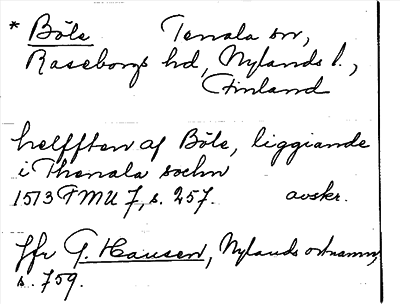 * Böle Tenala sn,
Raseborgs hd, Nylands l.,
Finland
helfften af Böle, liggiande
i Thenala sochn
1513 FMU 7, s. 257. avskr.
Jfr G. Hausen, Nylands ortnamn,
s. 759.